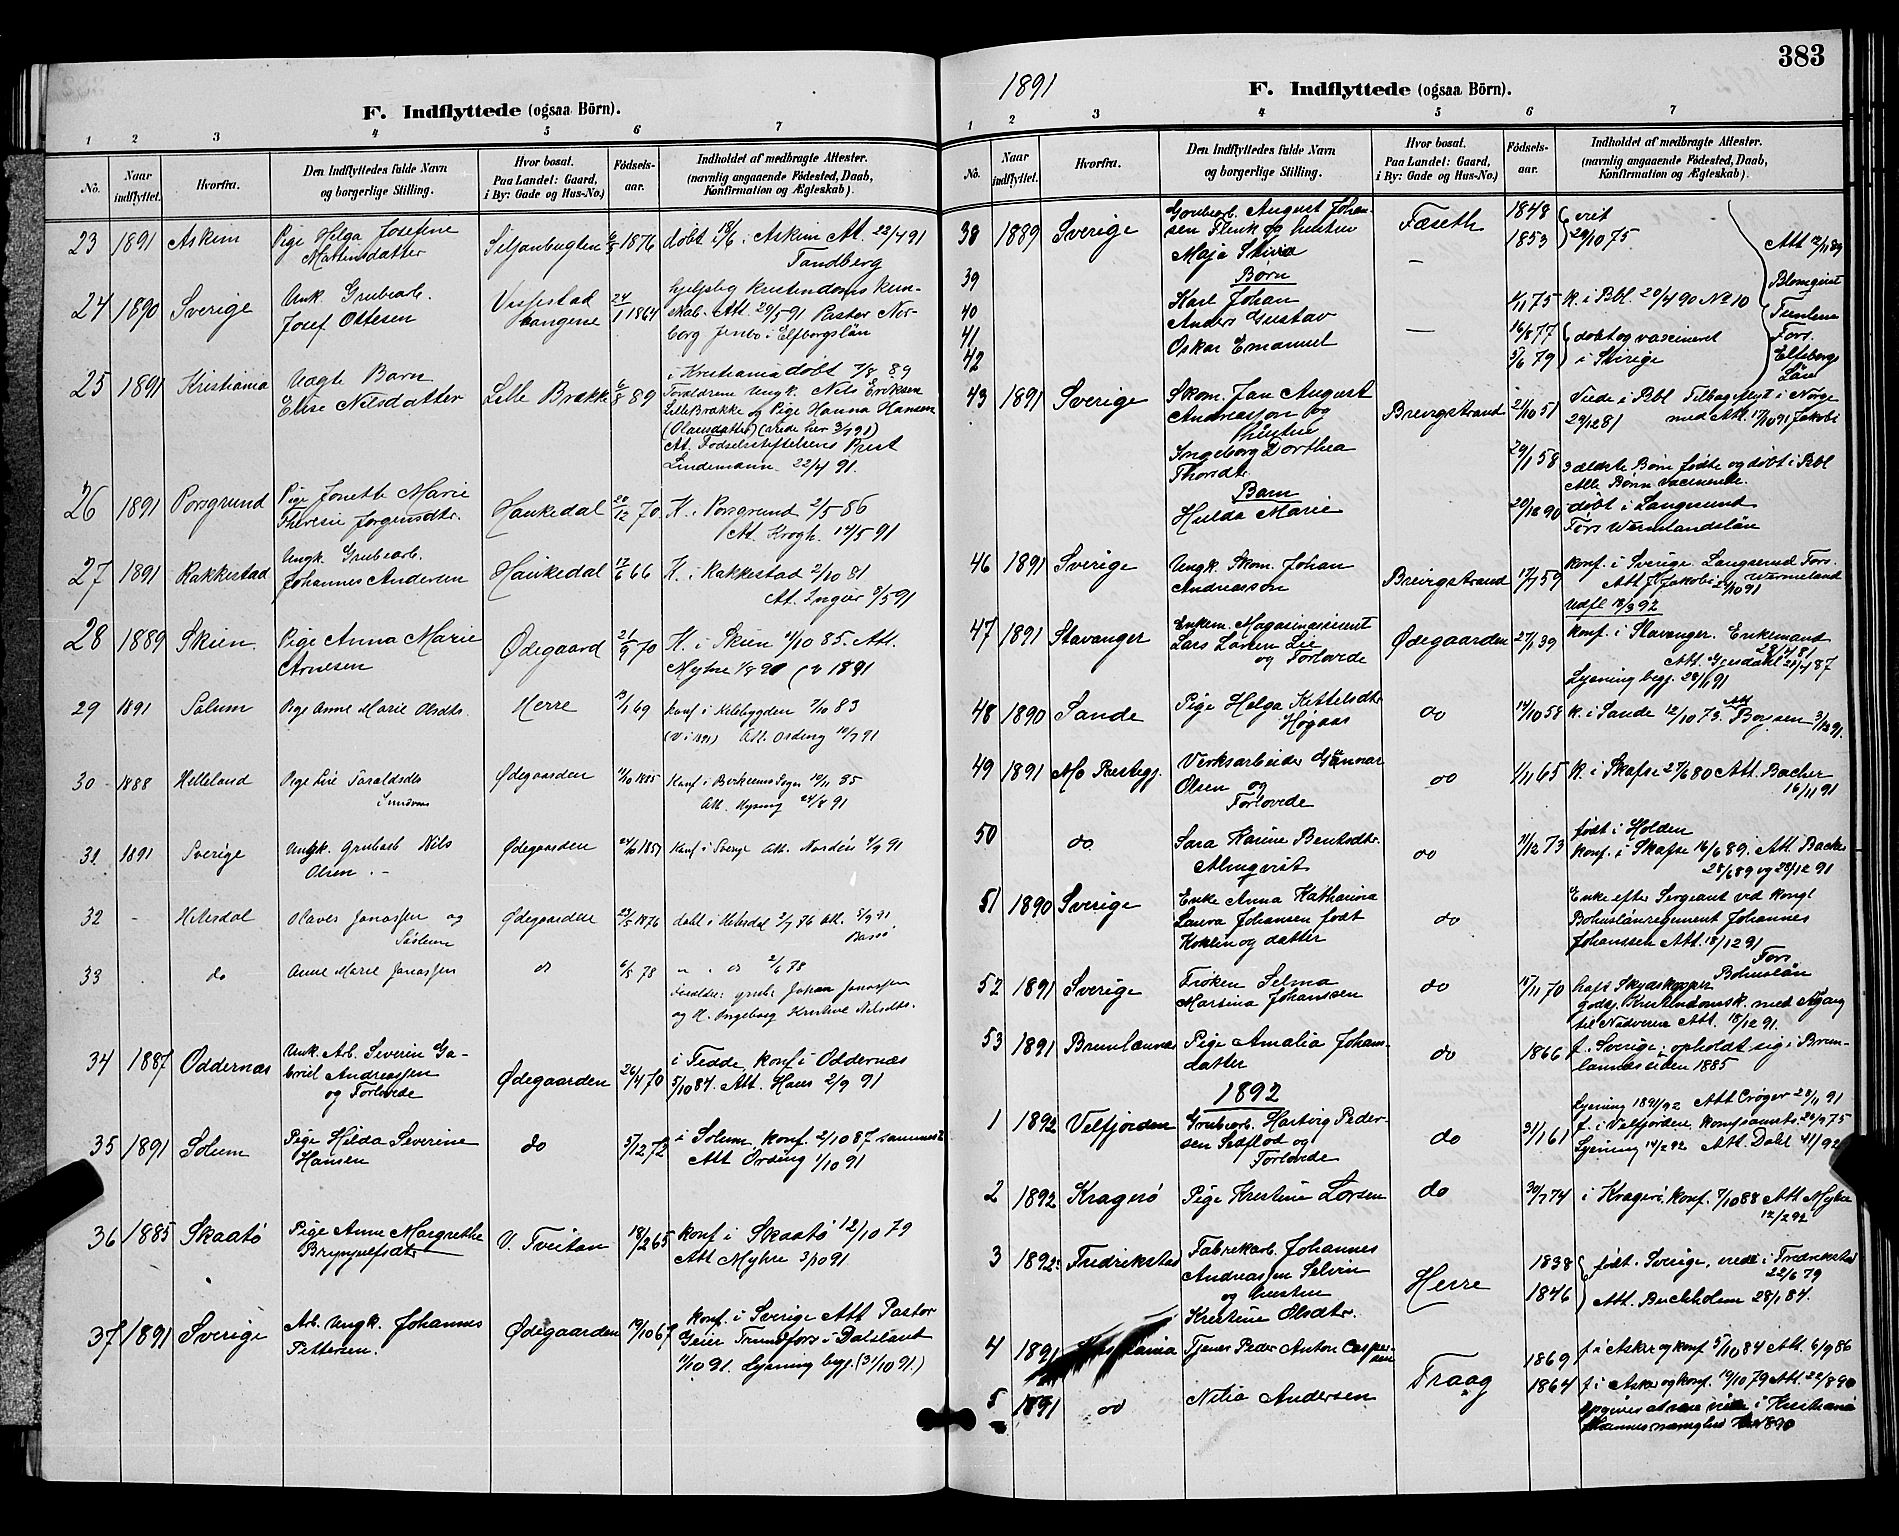 383
1891
F. Indflyttede (ogsaa Börn).
1 2 3 4 5 6 7
No.
Naar indflyttet.
Hvorfra.
Den Indflyttedes fulde Navn
og borgerlige Stilling.
Hvor bosat.
Paa Landet: Gaard,
i By: Gade og Hus-No.)
Födsels-
aar.
Indholdet af medbragte Attester.
(navnlig angaaende Födested, Daab,
Konfirmation og Ægteskab).
23 1891 Askim Pige Helga Josefine 1876 døbt 18/6 i Askim At. 22/4 91
Tandberg
24 1890 Sverige Unk. Grubearb. 24/1 1864
Josef Ottesen
skab. Att. 29/5 91 Pastor Nor-
borg i Elfborgslän
25 1891 Kristiania Uægte Barn Lille Brække 6/8 89 i Kristiania døbt 7/8 89
Elise Nilsdatter Forældrene Ungk. Nils Eriksen
Lille Brække og Pige Hanna Hansen
(Olaensdatter) (viede her 3/7 91)
At. Fødselsstiftelsens Prest
Lindemann 22/4 91.
26 1891 Porsgrund Pige Jonette Marie Haukedal 20/12 70 K. i Porsgrund 2/5 86
Theresie Jørgensdtr. At. Krogh. 14/5 91
27 1891 Rakkestad Ungk. Grubearb. Haukedal 17/6 66 K. i Rakkestad 2/10 81
Johannes Andersen At. Ingier 9/5 91
28 1889 Skien Pige Anna Marie Ødegaard 21/9 70 K. i Skien 4/10 85. Att.
Arnesen Myhre 1/8 90 (v 1891
29 1891 Solum Pige Anne Marie Olsdtr. Herre 69 Konf i Kilebygden 7/10 83
(v i 1891) Att. Ording 10/7 91
30 1888 Helleland Pige Ødegaarden 1865 Konf i Birkrems Sogn 85
Att. 24/8 91
31 1891 Sverige Ungk. Grubearb Nils Ødegaarden 1857 Konf i Sverige Att. Nordén 4/9 91
Olsen.
32 - Hitterdal Olaves Jonassen og Ødegaarden 23/5 1876 døbt i Hitterdal 2/7 76 Att. 5/9 91
Søsteren
33 do Anne Marie Jonassen do 6/5 78 2/6 78
Forældre: grub. Johan Jonassen
og H. Ingeborg Kristine Nilsdtr.
34 1887 Oddernæs Unk. Arb. Severin Ga- Ødegaarden 26/4 70 i Fedde konf. i Oddernæs
briel Andreassen 5/10 84. Att. 2/9 91
og Forlovede
35 1891 Solum Pige Hilda Severine do 5/12 72 i Solum, konf. 2/10 87 sammest.
Hansen Att Ording 1/10 91
36 1885 Skaatö Pige Anne Margrethe V. Tveitan 18/2 65 konf i Skaatö 12/10 79
Brynjulfsdtr Att Myhre 3/10 91
37 1891 Sverige Arb. Ungk. Johannes Ødegaarden 19/10 67 konf. i Sverige Att Pastor
Pettersen. Geier i Dalsland
1/10 91. Lysning beg. (3/10 91.)
F. Indflyttede (ogsaa Börn).
1 2 3 4 5 6 7
No.
Naar
indflyttet.
Hvorfra.
Den Indflyttedes fulde Navn
og borgerlige Stilling.
Hvor bosat.
Paa Landet: Gaard,
i By: Gade og Hus-No.)
Födsels-
aar.
Indholdet af medbragte Attester.
(navnlig angaaende Födested, Daab,
Konfirmation og Ægteskab).
38 1889 Sverige Grubearb. August Johan- Fæseth 1848
sen Flink og hustru 1853 29/10 75.
Maja Stina
39 Børn
Karl Johan 75 K. i Bbl. 20/4 90 No 10
40 Anders Gustav 16/8 77 døbt og vaccineret
41 Oskar Emanuel 79 i Sverige
42
Att 12/11 89
Blomqvist
Fors.
Elfsborgs
Län
43 1891 Sverige Skom. Jan August Brevigstrand 21/10 51 Viede i Bbl Tilbageflyt i Norge
Andreasson og 29/12 81 med Att. 17/10 91 Jakobi
hustru
Ingeborg Dorthea 29/1 58 3 ældste Børn fødte og døbt i Bbl
Thorsdt. Alle Børn vaccinerede.
Barn
Hulda Marie 20/10 90 døbt i Langserud
Fors Wärmlandslän
46 1891 Sverige Ungk. Skom. Johan Brevigstrand 17/7 59 konf. i Sverige Langserud Fors.
Andreasson Att. Jakobi 91 Wärmeland
Udfl 18/3 92
47 1891 Stavanger Enkem. Magasinassistent Ødegaarden 27/1 39 konf. i Stavanger. Enkemand
Lars Larsen Lie 28/4 81
og Forlovede Att. Gjesdahl 21/4 87
Lysning beg. 28/11 91
48 1890 Sande Pige Helga Kittelsdtr do 14/10 58 K. i Sande 12/10 73. Att Borgsen 3/12 91.
Høgaas
49 1891 Mo Prestegj. Verksarbeider Gunnar do 1/11 65 K. i Skafse 27/6 80 Att. Bacher
Olsen og 16/11 91
Forlovede
50 do Sara Karine Bentsdtr. do 11/12 73 født i Holden
Almqvist konf. i Skafse 16/6 89. Att. Bache
28/6 89 og 20/12 91
51 1890 Sverige Enke Anna Katharina do Enke efter Sergeant ved Kongl
Laura Johansen født Bohuslänregement Johannes
og datter Johanssen Att. 18/12 91
52 1891 Sverige Frøken Selma do 15/11 70 Fors Bohuslän
Martina Johanssen godkj. Kristendomsk. med Adgang
til Nadveren Att. 18/12 91.
53 1891 Brunlannæs Pige Amalia Johans- do 1866 f. i Sverige; opholdt sig i Brun-
datter lannæs siden 1885
1892
Lysning 1891/92 Att Crøger 28/11 91
1 1892 Velfjorden Grubearb. Hartvig Peder- do 31/1 61 f. i Velfjorden, konf sammests 26/9 75
sen Sedflod og Lysning 14/2 92 Att. Dahl 4/1 92
Forlovede
2 1892 Kragerö Pige Kristine Larsen do 30/7 74 i Kragerö. konf. 7/10 88 Att Myhre
12/2 92
3 1892 Fredrikstad Fabrikarb. Johannes Herre 1838 født i Sverige, viede i Fredrikstad
Andreassen Selvin 22/6 79
og hustru 1846 Att. Buchholm 28/1 84.
Kristine Olsdtr.
4 1891 Tjener Peder Anton Casper- Traag 1869 f i Asker og konf. 5/10 84 Att. 6/9 86
sen
5 1891 do Nilia Andersen 1864 f. i Asker og konf. 19/10 79 Att. 22/8 90
Opgives at være viede i Kristiania
1890